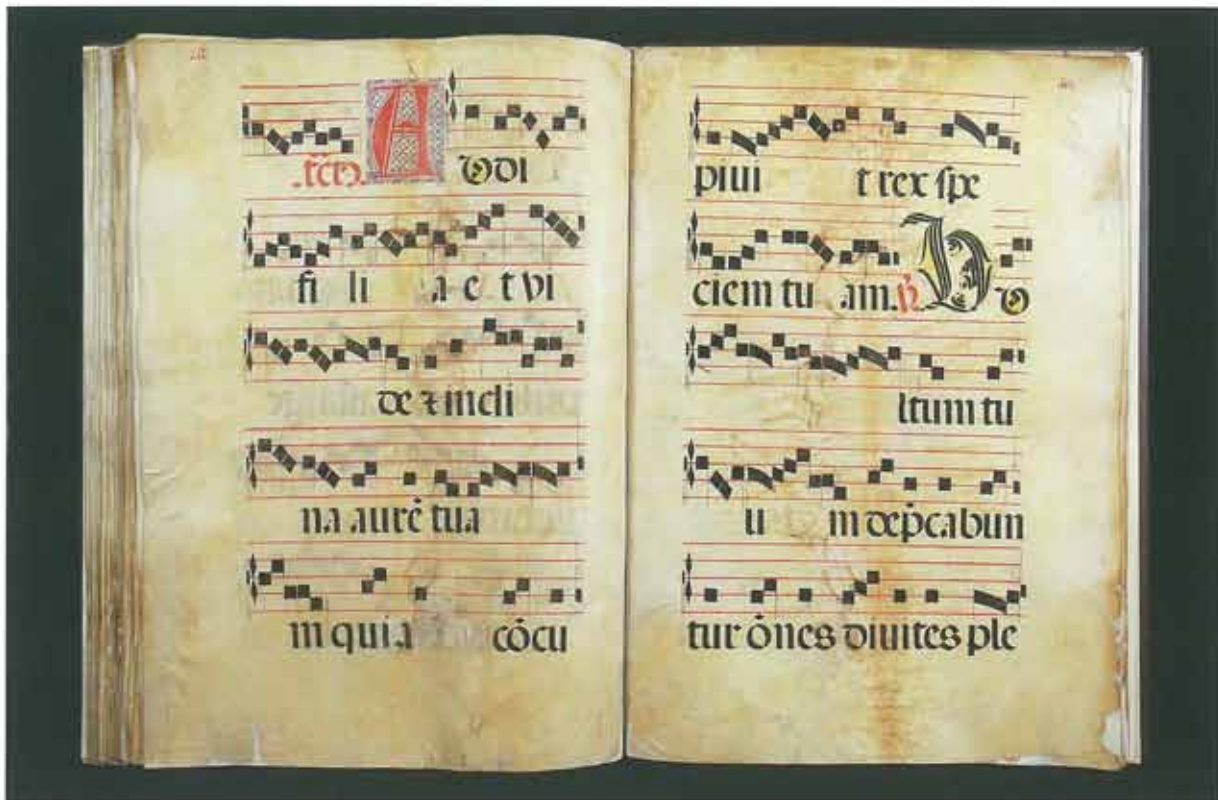 A vdi
fi li a e t vi
de ⁊ incli
na aurē tua
m quia cōcu
piui t rex ſpe
ciem tu am. ℣ V v
ltum tu
u m dep̄cabun
tur ōnes diuites ple